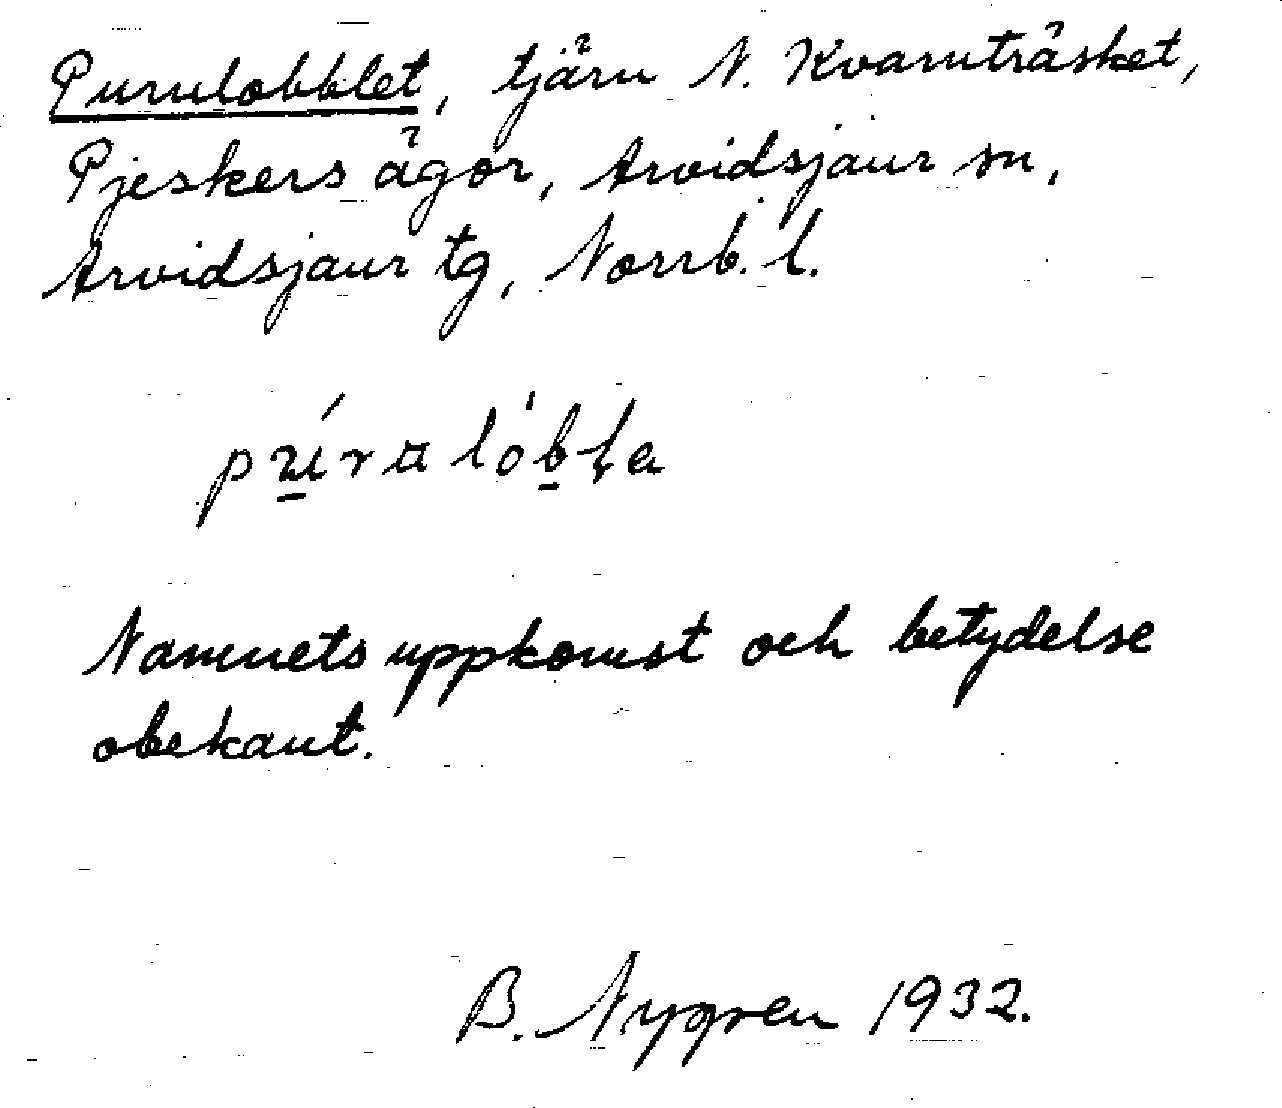 Purulobblet, tjärn N. Kvarnträsket,
Pjeskers ägor, Arvidsjaur sn,
Arvidsjaur tg, Norrb. l.
Namnets uppkomst och betydelse
obekant.
B. Nygren 1932.